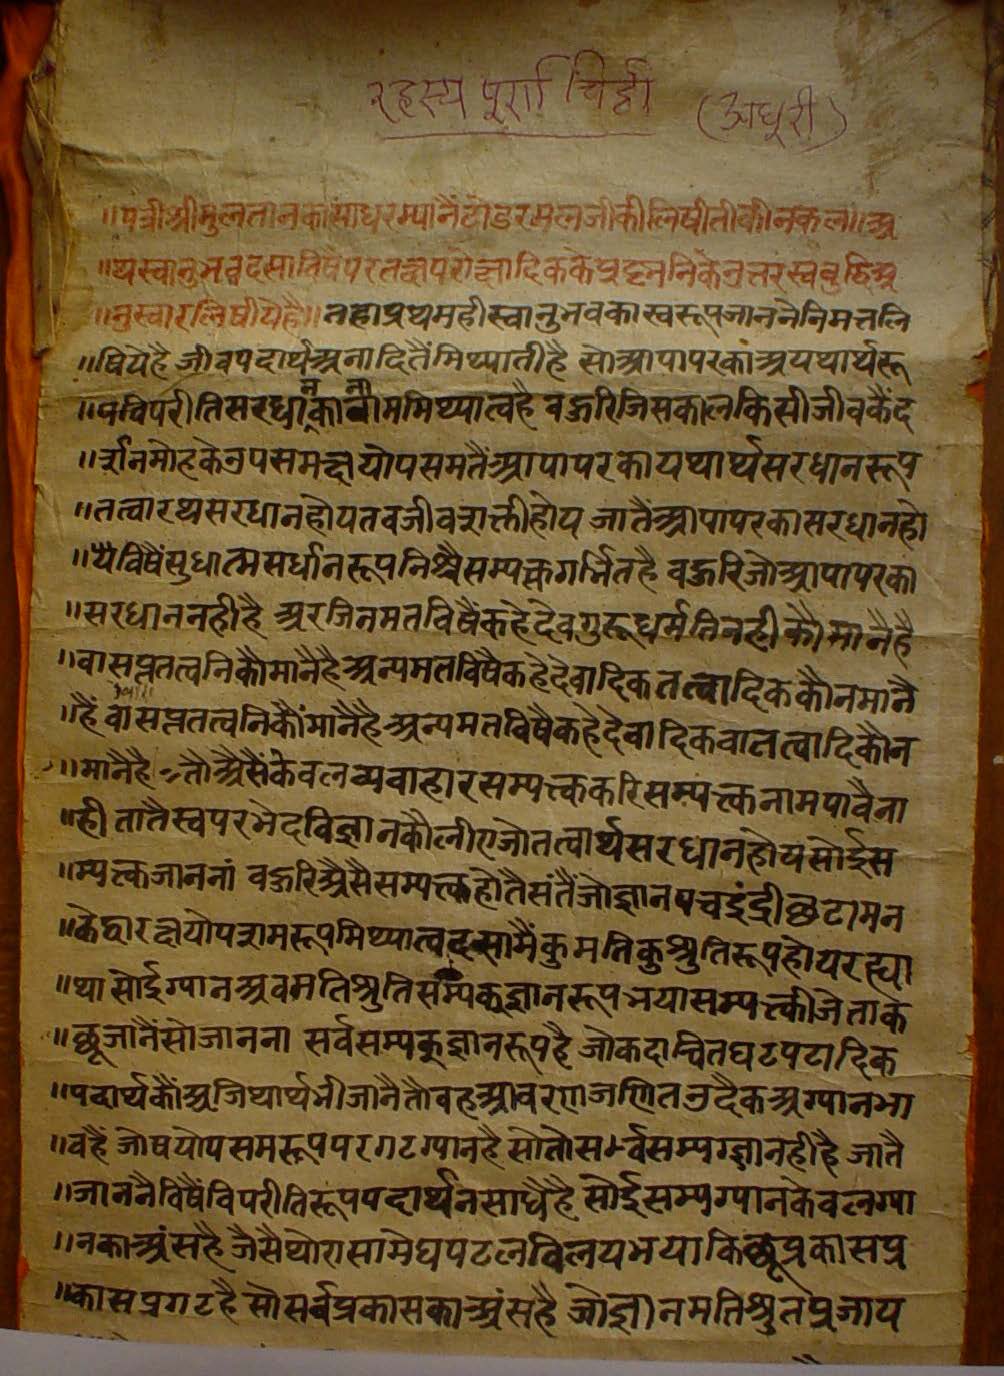 रहस्य पूर्ण चिट्ठी (अधूरी)
॥पत्रीश्रीमुलतानकासाधरम्यानैंटोडरमलजीकीलिषीतीकीनकल॥अ
॥थस्वानुभवदसाविषैपरतक्षपरोक्षादिककेप्रष्टननिकेउत्तरस्वबुद्धिअ
॥नुस्वारलिषीयेहै॥तहाप्रथमहीस्वानुभवकास्वरूपजाननैनिमत्तलि
॥षियेहै जीवपदार्थअनादितैंमिथ्यातीहै सोआपापरकाअयथार्थरू
॥पविपरीतिसरधानकानाममिथ्यात्वहै बहुरिजिसकालकिसीजीवकैंद
॥र्शनमोहकेउपसमक्षयोपसमतैंआपापरकायथार्थसरधानरूप
॥तत्वारथसरधानहोयतबजीवसम्यक्तीहोय जातैंआपापरकासरधानहो
॥यैविषैंसुधात्मसर्धानरूपनिश्चैसम्यक्तगर्भितहै बहुरिजोआपापरका
॥सरधाननहीहै अरजिनमतविषैंकहेदेवगुरूधर्मतिनहीकौमानैहै
॥वासप्ततत्वनिकौमानैहैअन्यमतविषैकहेदेवादिकतत्वादिककौनमानै
॥हैं वासप्ततत्वनिकौंमानैहैअन्यमतविषैकहेदेवादिकवातत्वादिकौन
॥मानैहै तौअैसैंकेवलव्यवाहारसम्यक्तकरिसम्यक्तनामपावैना
॥ही तातैस्वपरभेदविज्ञानकौलीएजोतत्वार्थसरधानहोयसोईस
॥म्यक्तजाननां बहुरिअैसैसम्यक्तहोतैसंतैंजोज्ञानपञ्चइंद्रीछटामन
॥केद्वारक्षयोपशमरूपमिथ्यात्वदसामैंकुमतिकुश्रुतिरूपहोयरह्या
॥था सोईग्यानअवमतिश्रुतिसम्यक्ज्ञानरूपभयासम्यक्तीजेताक
॥छूजानैंसोजानना सर्वसम्यक्ज्ञानरूपहै जोकदाचितघटपटादिक
॥पदार्थकौंअजिथार्थभीजानैतौवहआवरणजणितउदैकअग्यानभा
॥वहै जोषयोपसमरूपपरगटग्यानहै सोतोसर्वसम्यग्ज्ञानहीहै जातै
॥जाननैविषैंविपरीतिरूपपदार्थनसाधैहै सोईसम्यग्यानकेवलग्या
॥नकाअंसहै जैसैथोरासामेघपटलविलयभयाकिछूप्रकासप्र
॥कासप्रगटहै सोसर्वप्रकासकाअंसहै जोज्ञानमतिश्रुतप्रजाय